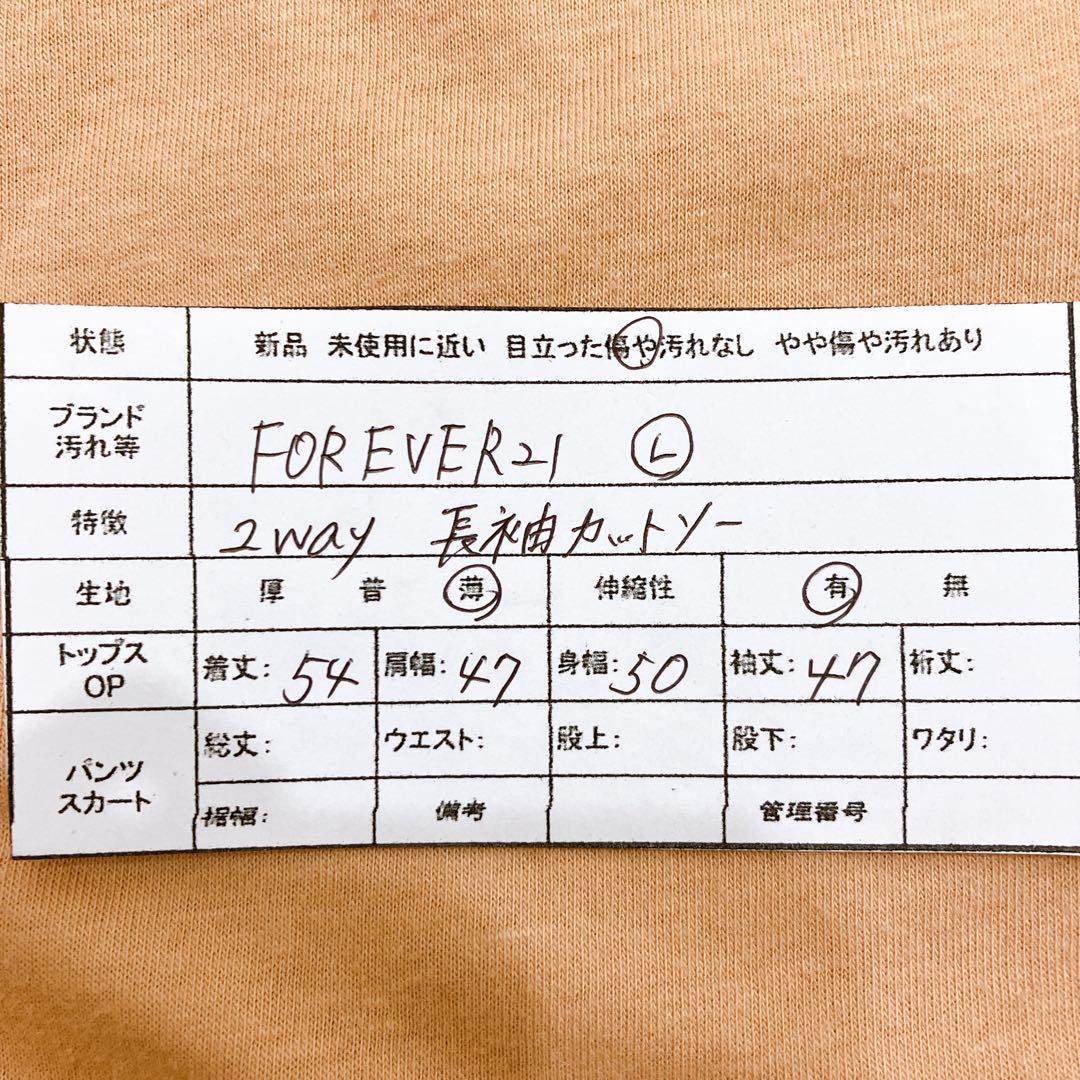 状態 新品 未使用に近い 目立った傷や汚れなし やや傷や汚れあり
ブランド
汚れ等 FOREVER21 L
特徴 2way 長袖カットソー
生地 厚 普 薄 伸縮性 有 無
トップス
OP 着丈: 54 肩幅: 47 身幅: 50 袖丈: 47 裄丈:
パンツ
スカート 総丈: ウエスト: 股上: 股下: ワタリ:
裾幅: 備考 管理番号